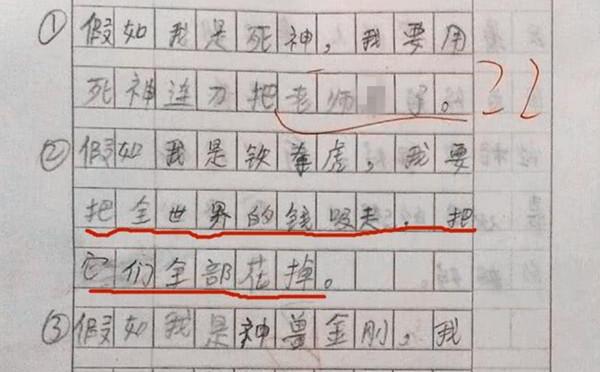 ① 假如我是死神，我要用
死神连刀把老师了。
② 假如我是铁拳虎，我要
把全世界的钱吸，把
它们全部花掉。
③ 假如我是神兽金刚，我